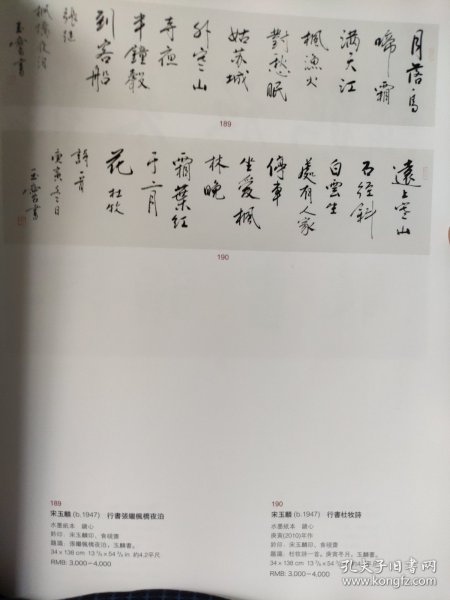 月落烏
啼霜
满天江
楓漁火
對愁眠
姑苏城
外寒山
寺夜
半鐘聲
到客船
張继
楓橋夜泊
玉麟書
189
遠上寒山
石径斜
白雲生
處有人家
停車
坐愛楓
林晚
霜葉红
于二月
花 杜牧
詩一首
庚寅冬月
玉麟書
190
189
宋玉麟 (b.1947) 行書張繼楓橋夜泊
水墨紙本 鏡心
鈐印：宋玉麟印、食硯齋
題識：張繼楓橋夜泊，玉麟書。
34 x 138 cm 13 3/8 x 54 3/8 in 約4.2平尺
RMB: 3,000—4,000
190
宋玉麟 (b.1947) 行書杜牧詩
水墨紙本 鏡心
庚寅(2010)年作
鈐印：宋玉麟印、食硯齋
題識：杜牧詩一首。庚寅冬月，玉麟書。
34 x 138 cm 13 3/8 x 54 3/8 in 約4.2平尺
RMB: 3,000—4,000
孔夫子旧书网